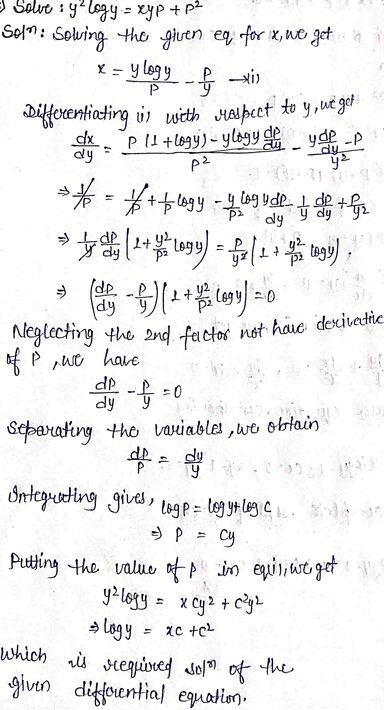 Solve : y² log y = xyp + p²
Solⁿ: Solving the given eq for x, we get
x = y log y / p - p/y →(i)
Differentiating (i) with respect to y, we get
dx/dy = (p (1 + log y) - y log y dp/dy) / p² - (y dp/dy - p) / y²
⇒ 1/p = 1/p + 1/p log y - y/p² log y dp/dy - 1/y dp/dy + p/y²
⇒ 1/y dp/dy (1 + y²/p² log y) = p/y² (1 + y²/p² log y).
⇒ (dp/dy - p/y) (1 + y²/p² log y) = 0
Neglecting the 2nd factor not have derivative
of p, we have
dp/dy - p/y = 0
Separating the variables, we obtain
dp/p = dy/y
Integrating gives, log p = log y + log c
⇒ p = cy
Putting the value of p in eq(i), we get
y² log y = x cy² + c²y²
⇒ log y = xc + c²
which is required solⁿ of the
given differential equation.